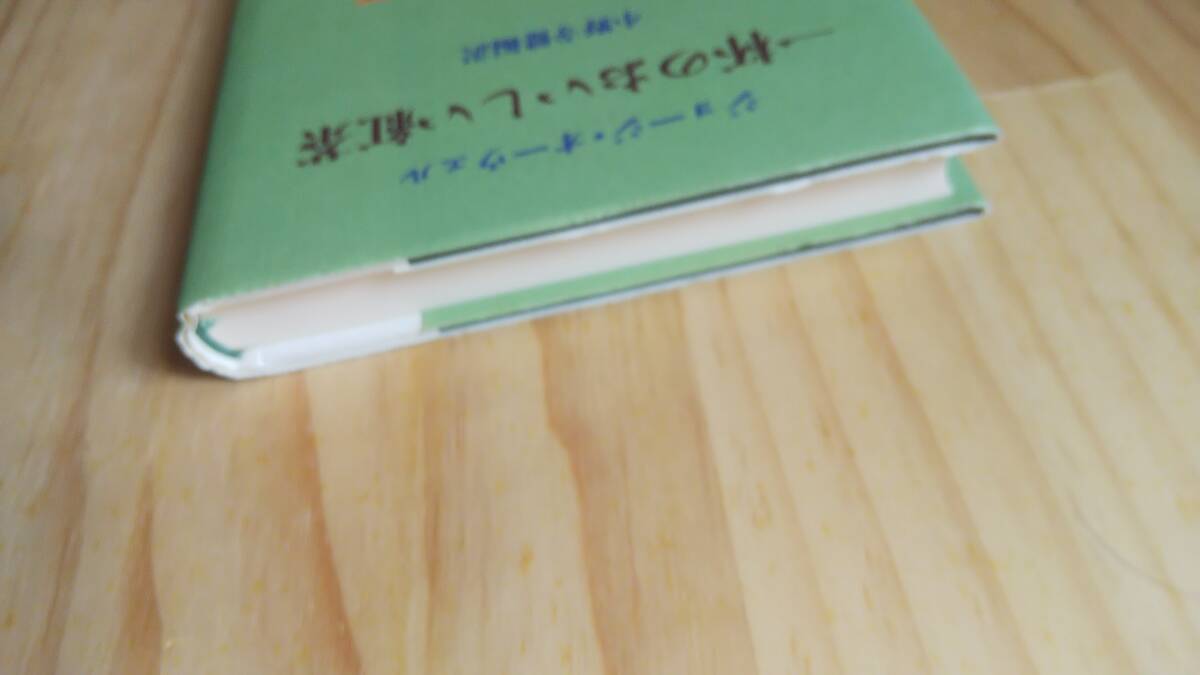 ジョージ・オーウェル
一杯のおいしい紅茶
小野寺健編訳